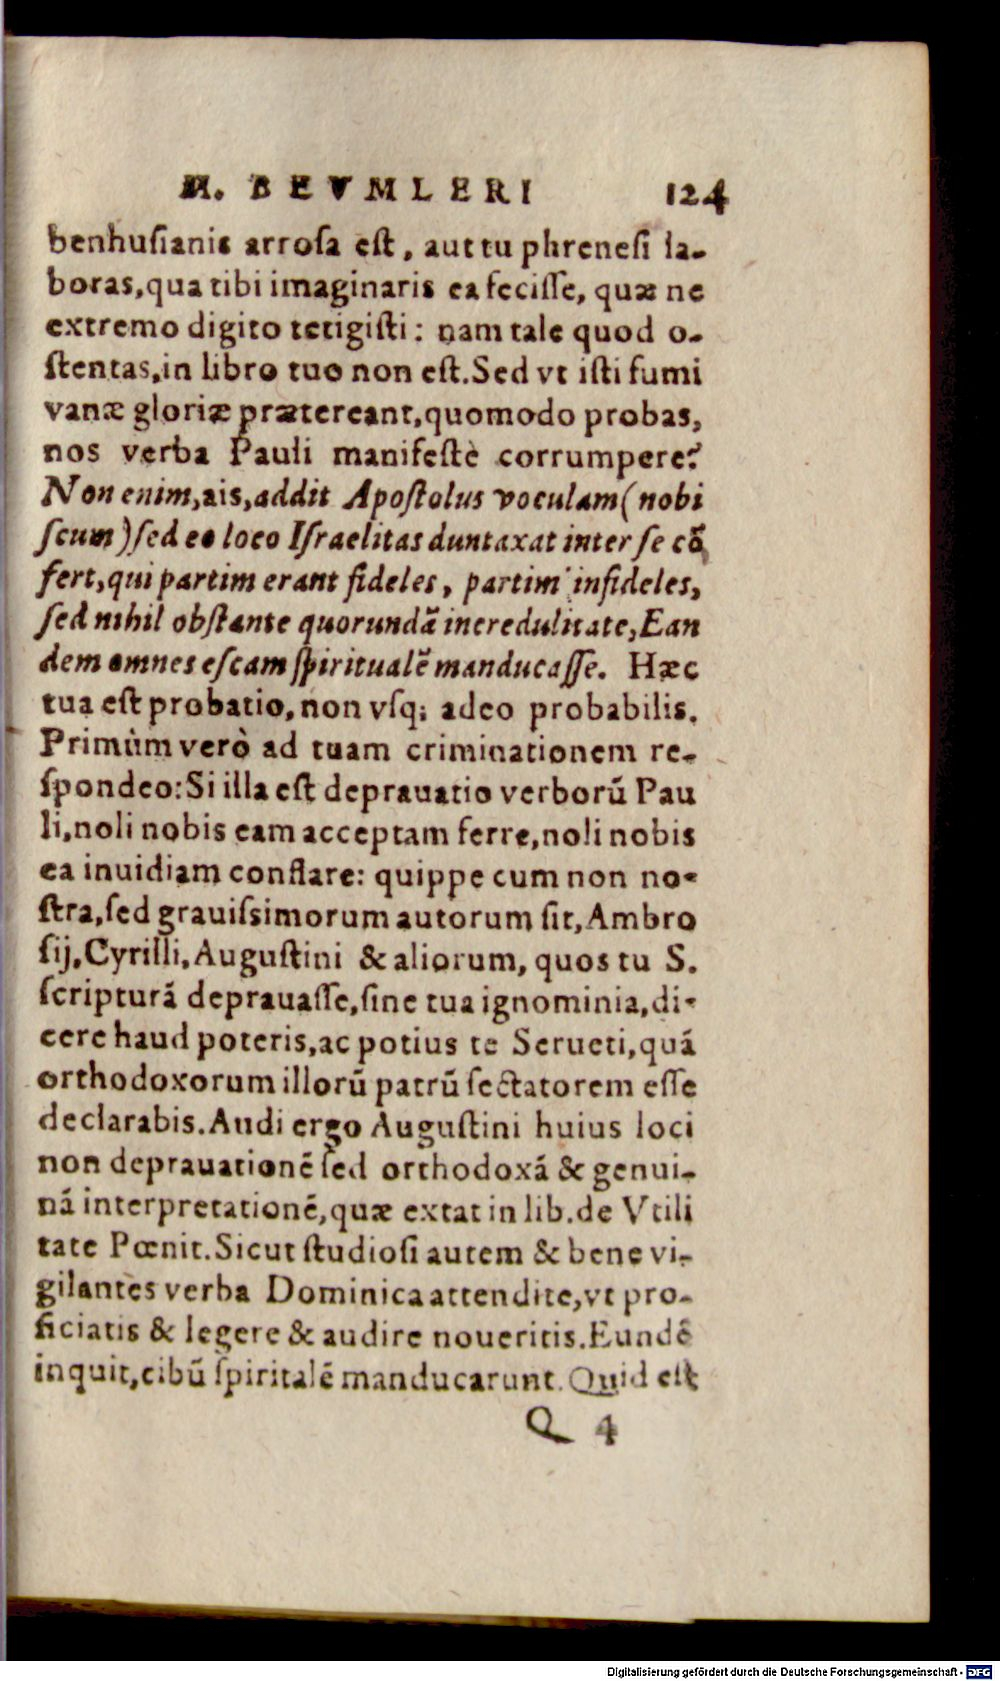 M. BEVMLERI 124
benhusianis arrosa est, aut tu phrenesi la-
boras, qua tibi imaginaris ea fecisse, quæ ne
extremo digito tetigisti: nam tale quod o-
stentas, in libro tuo non est. Sed vt isti fumi
vanæ gloriæ prætereant, quomodo probas,
nos verba Pauli manifestè corrumpere?
Non enim, ais, addit Apostolus voculam (nobi
scum) sed eo loco Israelitas duntaxat inter se cō
fert, qui partim erant fideles, partim infideles,
sed nihil obstante quorundā incredulitate, Ean
dem omnes escam spiritualē manducasse. Hæc
tua est probatio, non vsq; adeo probabilis.
Primùm verò ad tuam criminationem re-
spondeo: Si illa est deprauatio verborū Pau
li, noli nobis eam acceptam ferre, noli nobis
ea inuidiam conflare: quippe cum non no-
stra, sed grauissimorum autorum sit, Ambro
sij, Cyrilli, Augustini & aliorum, quos tu S.
scripturā deprauasse, sine tua ignominia, di-
cere haud poteris, ac potius te Serueti, quā
orthodoxorum illorū patrū sectatorem esse
declarabis. Audi ergo Augustini huius loci
non deprauationē sed orthodoxā & genui-
nā interpretationē, quæ extat in lib. de Vtili
tate Pœnit. Sicut studiosi autem & bene vi-
gilantes verba Dominica attendite, vt pro-
ficiatis & legere & audire noueritis. Eundē
inquit, cibū spiritalē manducarunt. Quid est
Q 4
Digitalisierung gefördert durch die Deutsche Forschungsgemeinschaft - DFG